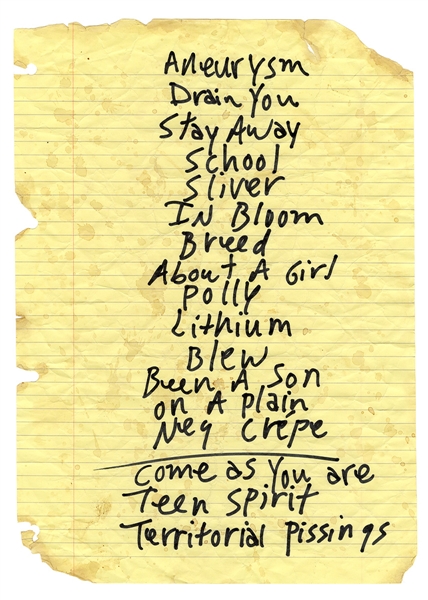 Aneurysm
Drain You
Stay Away
School
Sliver
IN Bloom
Breed
About A Girl
Polly
Lithium
Blew
Been A Son
on A plain
Neg Crêpe
Come as You are
Teen Spirit
Territorial Pissings